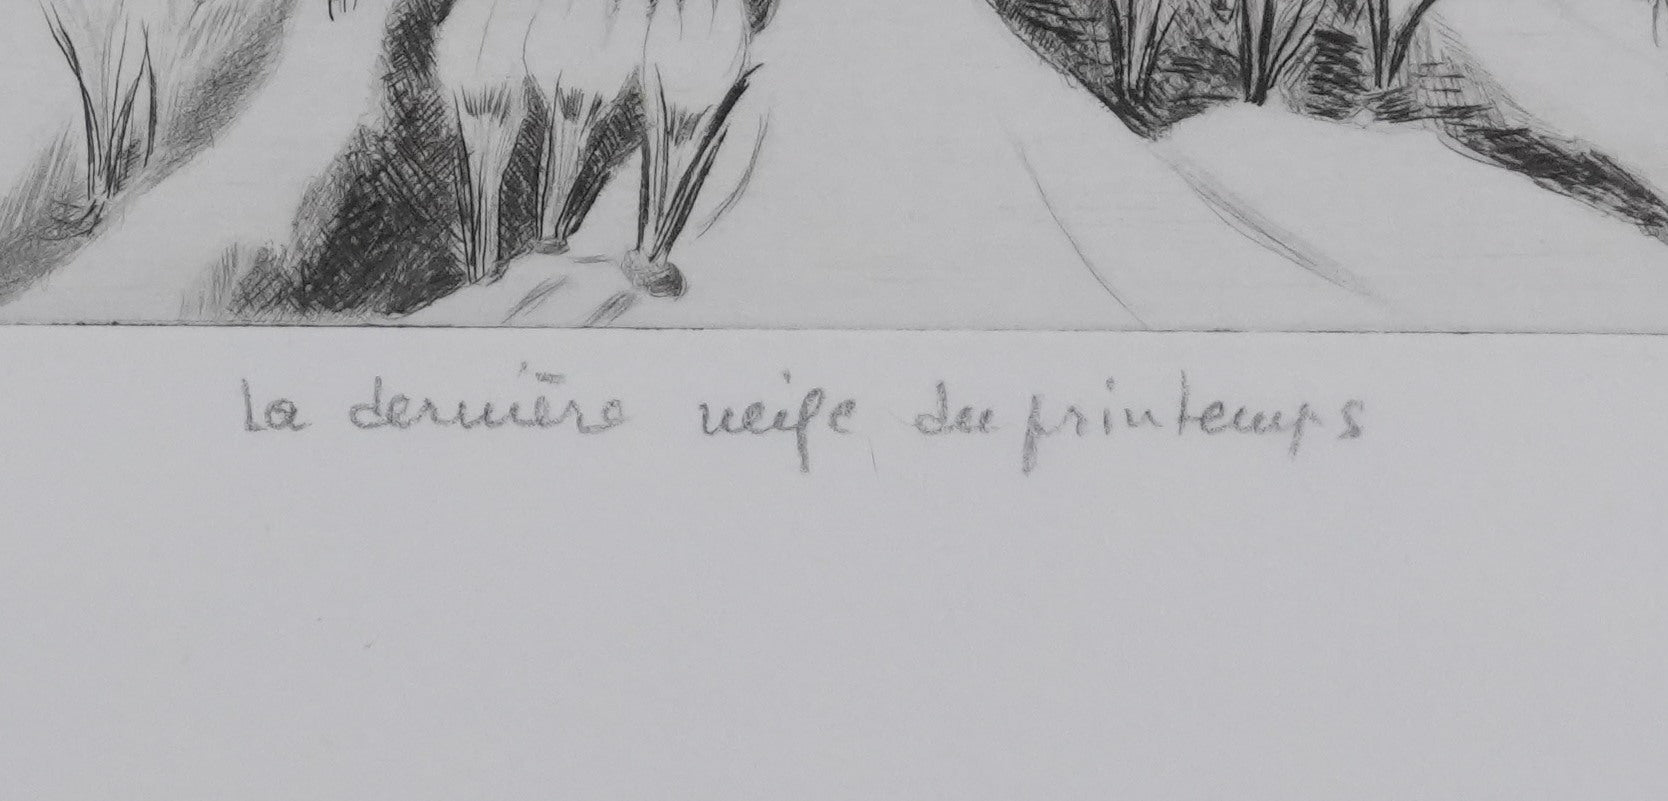 La dernière neige du printemps